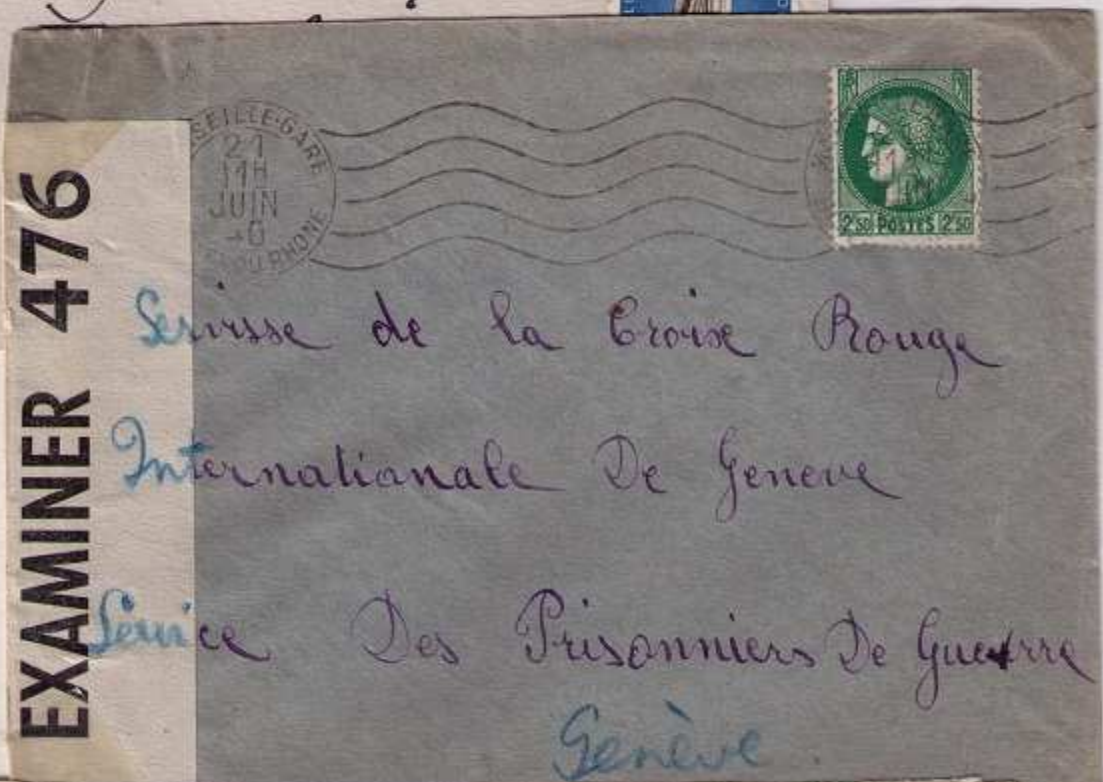 EXAMINER 476
SEILLE-GARE
21
17H
JUIN
-0
DU RHONE
2F50 POSTES 2F50
Servisse de la Croix Rouge
Internationale De Geneve
Service Des Prisonniers De Guerre
Genève.